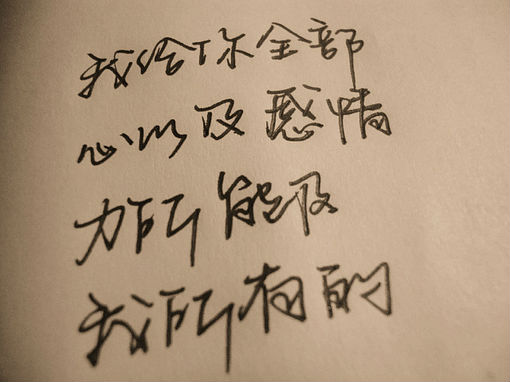 我给你全部
心以及感情
力所能及
我所有的